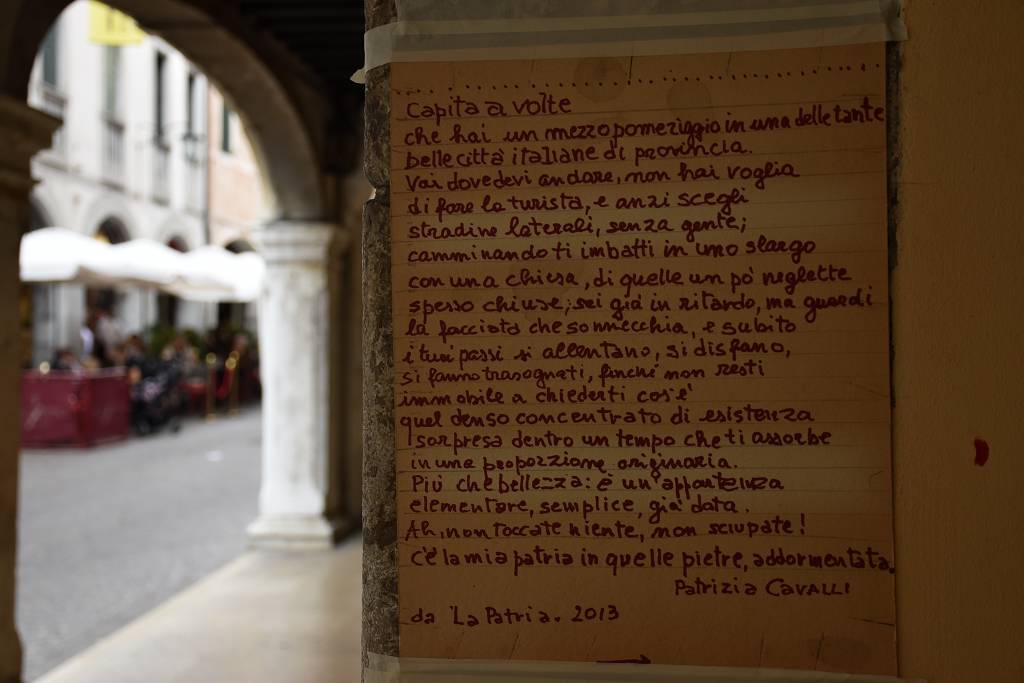 ................................................
Capita a volte
che hai un mezzo pomeriggio in una delle tante
belle città italiane di provincia.
Vai dove devi andare, non hai voglia
di fare la turista, e anzi scegli
stradine laterali, senza gente;
camminando ti imbatti in uno slargo
con una chiesa, di quelle un pò neglette
spesso chiuse; sei già in ritardo, ma guardi
la facciata che sonnecchia, e subito
i tuoi passi si allentano, si disfano,
si fanno trasognati, finché non resti
immobile a chiederti cos'è
quel denso concentrato di esistenza
sorpresa dentro un tempo che ti assorbe
in una proporzione originaria.
Più che bellezza: è un'appartenenza
elementare, semplice, già data.
Ah, non toccate niente, non sciupate!
C'è la mia patria in quelle pietre, addormentata.
Patrizia CAVALLI
da "La Patria. 2013